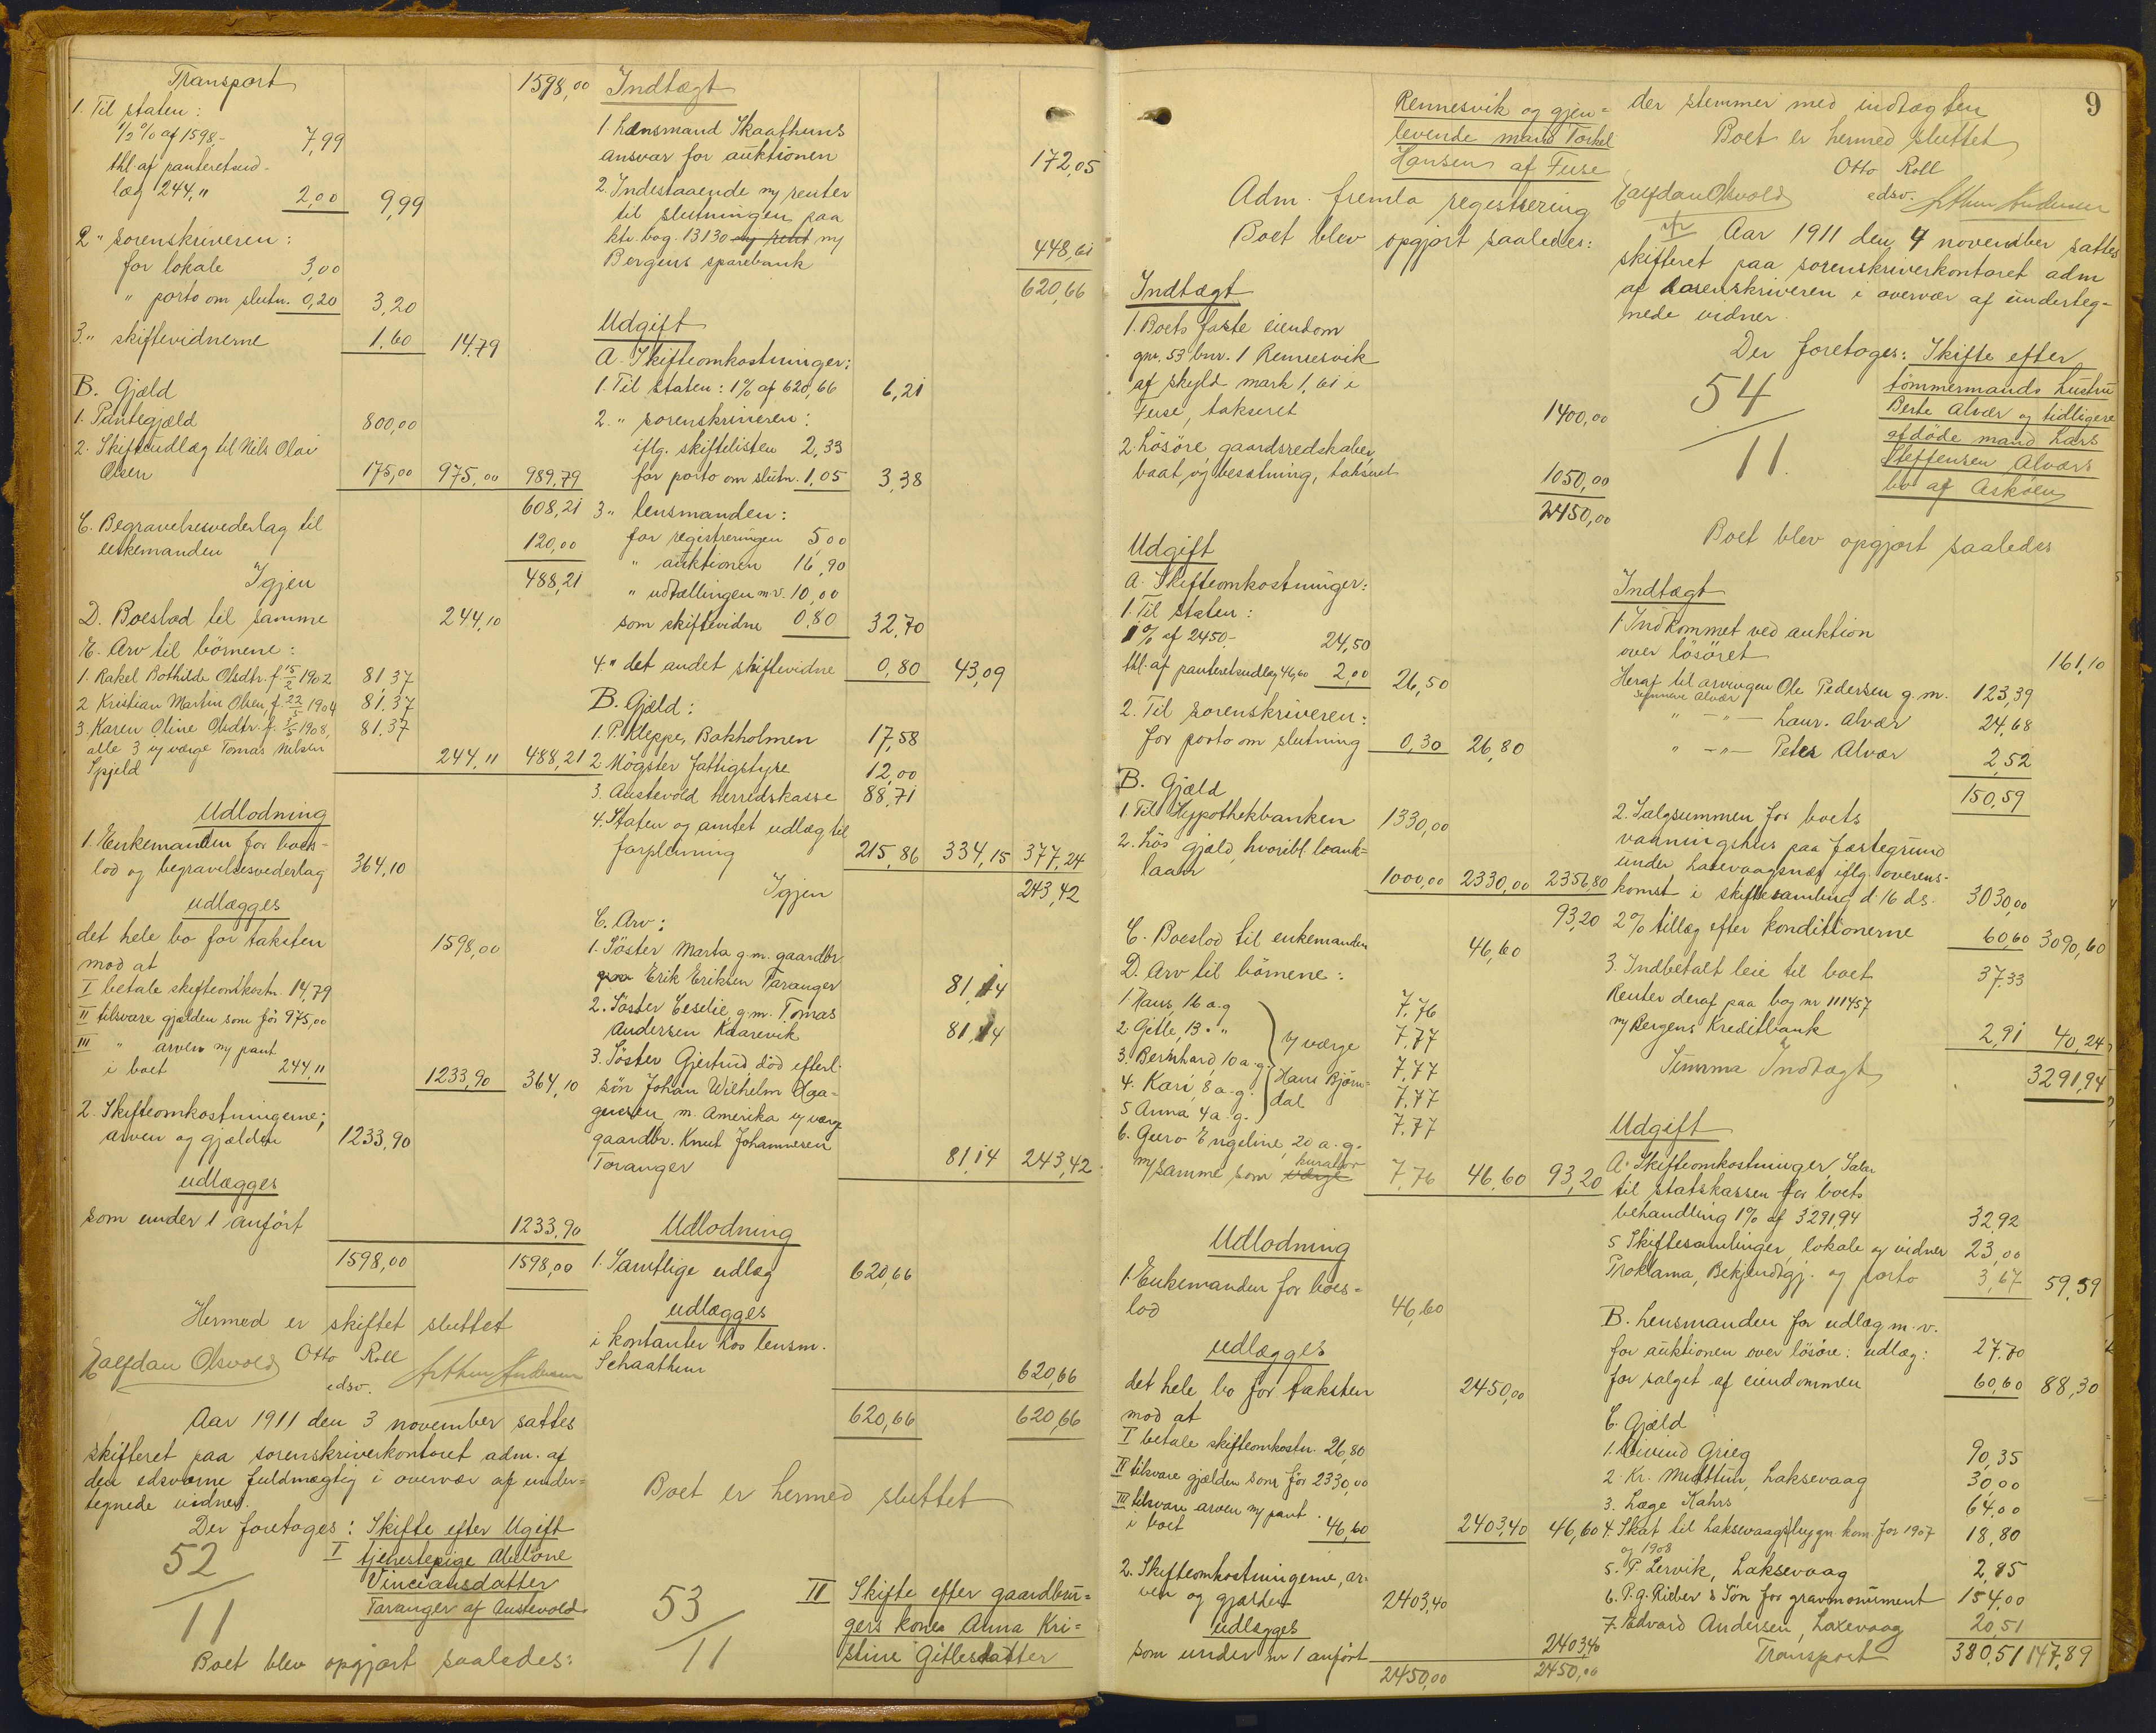 Transport 1598,00
1. Til staten:
1/2 % af 1598,- 7,99
thl. af panteretsud-
læg 244,11 2,00 9,99
2 " sorenskriveren:
for lokale 3,00
" porto om slutn. 0,20 3,20
3. " skiftevidnerne 1,60 14,79
B. Gjæld
1. Pantegjæld 800,00
2. Skifteudlæg til Nils Olai
Olsen 175,00 975,00 989,79
608,21
C. Begravelsesvederlag til
enkemanden 120,00
Igjen 488,21
D. Boeslod til samme 244,10
E. Arv til börnene:
1. Rakel Bothilde Olsdtr. f. 15/2 1902 81,37
2 Kristian Martin Olsen, f. 22/5 1904 81,37
3. Karen Oline Olsdtr. f. 3/5 1908, 81,37
alle 3 v/ værge Tomas Nilsen
Spjeld 244,11 488,21
Udlodning
1. Enkemanden for boes-
lod og begravelsesvederlag 364,10
udlægges
det hele bo for taksten 1598,00
mod at
I betale skifteomkostn. 14,79
II tilsvare gjælden som för 975,00
III " arven m/ pant
i boet 244,11 1233,90 364,10
2. Skifteomkostningerne,
arven og gjælden 1233,90
udlægges
som under 1 anfört 1233,90
1598,00 1598,00
Hermed er skiftet sluttet
Otto Roll
Halfdan Olsvold edsv. Arthur Andersen
Aar 1911 den 3 november sattes
skifteret paa sorenskriverkontoret adm. af
den edsvorne fuldmægtig i overvær af under-
tegnede vidner.
Der foretoges: Skifte efter Ugift
52/11 I tjenestepige Abelone
Vinciansdatter
Taranger af Austevold
Boet blev opgjort saaledes:
Indtægt
1 Lensmand Skaathuns
ansvar for auktionen 172,05
2. Indestaaende m/ renter
til slutningen paa
ktr. bog. 13130 m/
Bergens sparebank 448,61
620,66
Udgift
A. Skifteomkostninger:
1. Til staten: 1% af 620,66 6,21
2. " sorenskriveren:
iflg. skiftelisten 2,33
for porto om slutn. 1,05 3,38
3 " lensmanden:
for registreringen 5,00
" auktionen 16,90
" udtællingen m.v. 10,00
som skiftevidne 0,80 32,70
4 " det andet skiftevidne 0,80 43,09
B. Gjæld:
1. P. Kleppe, Bakholmen 17,58
2 Mögster fattigstyre 12,00
3. Austevold herredskasse 88,71
4. Staten og amtet udlæg til
forpleining 215,86 334,15 377,24
Igjen 243,42
C. Arv:
1. Söster Marta g.m. gaardbr.
Erik Eriksen Taranger 81,14
2. Söster Ceselie, g.m. Tomas
Andersen Kaarevik 81,14
3. Söster Gjertrud, död efterl.
sön Johan Wilhelm Haa-
gensen, m. Amerika v/ værge
gaardbr. Knut Johannesen
Taranger 81,14 243,42
Udlodning
1. Samtlige udlæg 620,66
udlægges
i kontanter hos lensm.
Schaathun 620,66
620,66 620,66
Boet er hermed sluttet
53/11 II Skifte efter gaardbru-
gers kone Anna Kri-
stine Gitlesdatter
9
Rennesvik og gjen-
levende mand Torkel
Hansen af Fuse
Adm. fremla registrering
Boet blev opgjort saaledes:
Indtægt
1. Boets faste eiendom
gnr. 53 bnr. 1 Rennesvik
af skyld mark 1,61 i
Fuse, takseret 1400,00
2. Lösöre, gaardsredskaber,
baat og besætning, takseret 1050,00
2450,00
Udgift
A. Skifteomkostninger:
1. Til staten:
1% af 2450,- 24,50
thl. af panteretsudlæg 46,60 2,00 26,50
2. Til sorenskriveren:
for porto om slutning 0,30 26,80
B. Gjæld
1. Til Hypothekbanken 1330,00
2. Lös gjæld, hvoribl. bank-
laan 1000,00 2330,00 2356,80
93,20
C. Boeslod til enkemanden 46,60
D. Arv til börnene:
1. Hans, 16 a.g. 7,76
2. Gitle, 13 " " 7,77
v/ værge
3. Bernhard, 10 a.g. 7,77
4. Kari, 8 a.g. Hans Björn- 7,77
dal
5 Anna, 4 a.g. 7,77
6. Guro Engeline, 20 a.g.
m/ samme som kurator værge 7,76 46,60 93,20
Udlodning
1. Enkemanden for boes-
lod 46,60
udlægges
det hele bo for taksten 2450,00
mod at
I betale skifteomkostn. 26,80
II tilsvare gjælden som för 2330,00
III tilsvare arven m/ pant
i boet 46,60 2403,40 46,60
2. Skifteomkostningerne, ar-
ven og gjælden 2403,40
udlægges
som under nr 1 anfört 2403,40
2450,00 2450,00
der stemmer med indtægten
Boet er hermed sluttet
Otto Roll
Halfdan Olsvold edsv. Arthur Andersen
Aar 1911 den 4 november sattes
skifteret paa sorenskriverkontoret adm
af sorenskriveren i overvær af underteg-
nede vidner.
Der foretoges: Skifte efter
54/11 tömmermands hustru
Berte Alvær og tidligere
afdöde mand Lars
Steffensen Alværs
bo af Asköen
Boet blev opgjort saaledes
Indtægt
1 Indkommet ved auktion
over lösöret 161,10
Heraf til arvingen Ole Pedersen g.m. 123,39
Synneve Alvær
" -"- Laur. Alvær 24,68
" -"- Peter Alvær 2,52
150,59
2. Salgsummen for boets
vaaningshus paa fæstegrund
under Laxevaagsnæs iflg. overens-
komst i skiftesamling d. 16 ds. 3030,00
2% tillæg efter konditionerne 60,60 3090,60
3. Indbetalt leie til boet 37,33
Renter deraf paa bog nr 111457
m/ Bergens Kreditbank 2,91 40,24
Summa Indtægt 3291,94
Udgift
A. Skifteomkostninger, Salær
til statskassen for boets
behandling 1% af 3291,94 32,92
5 Skiftesamlinger, lokale og vidner 23,00
Proklama, Bekjendtgj. og porto 3,67 59,59
B. Lensmanden for udlæg m.v.
for auktionen over lösöre: udlæg: 27,70
for salget af eiendommen 60,60 88,30
C. Gjæld
1. Eivind Grieg 90,35
2. Kr. Midttun, Laksevaag 30,00
3. Læge Kahrs 64,00
4. Skat til Laksevaags bygn. kom. for 1907 18,80
og 1908
5. P. Lervik, Laksevaag 2,85
6. P.g. Rieber & Sön for gravmonument 154,00
7. Edvard Andersen, Laxevaag 20,51
Transport 380,51 147,89